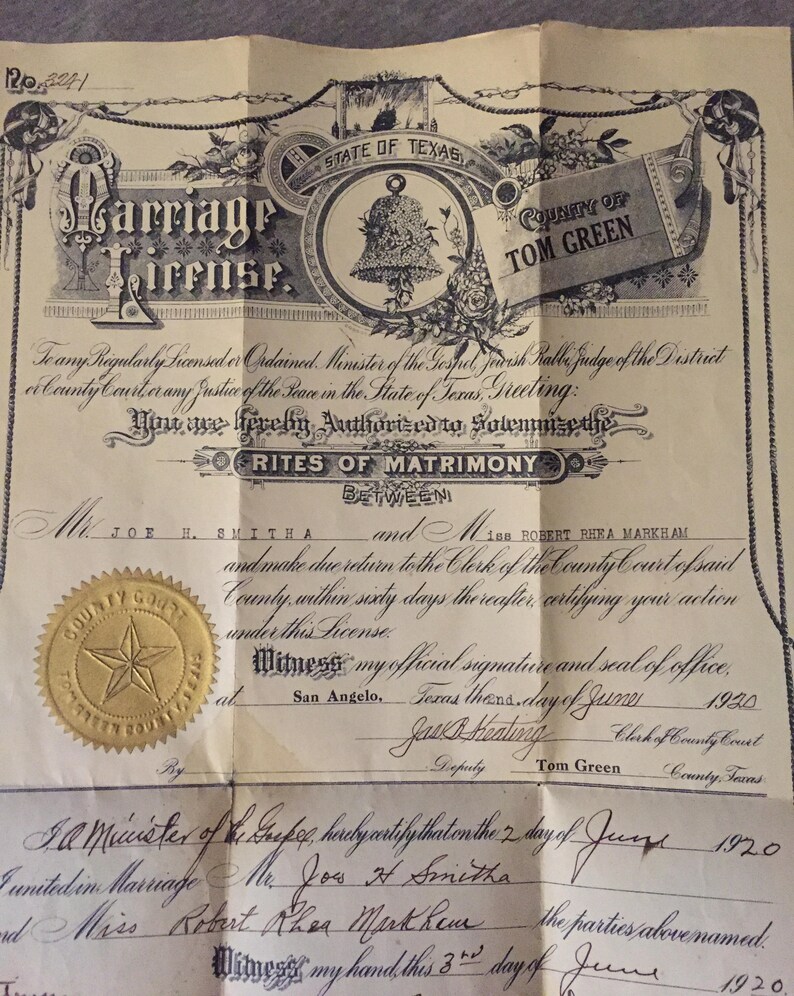 No. 3241
STATE OF TEXAS,
Marriage
License.
COUNTY OF
TOM GREEN
To any Regularly Licensed or Ordained Minister of the Gospel, Jewish Rabbi, Judge of the District
or County Court, or any Justice of the Peace in the State of Texas, Greeting:
You are hereby Authorized to Solemnize the
RITES OF MATRIMONY
BETWEEN
Mr. JOE H. SMITHA and Miss ROBERT RHEA MARKHAM
and make due return to the Clerk of the County Court of said
County, within sixty days thereafter, certifying your action
under this License.
COUNTY COURT
TOM GREEN COUNTY, TEXAS
Witness my official signature and seal of office,
at San Angelo, Texas the 2nd. day of June 1920
Jas B Keating Clerk of County Court
By Deputy Tom Green County, Texas
I, A Minister of the Gospel, hereby certify that on the 2 day of June 1920
I united in Marriage Mr. Joe H Smitha
nd Miss Robert Rhea Markham the parties above named.
Witness my hand, this 3rd day of June 1920